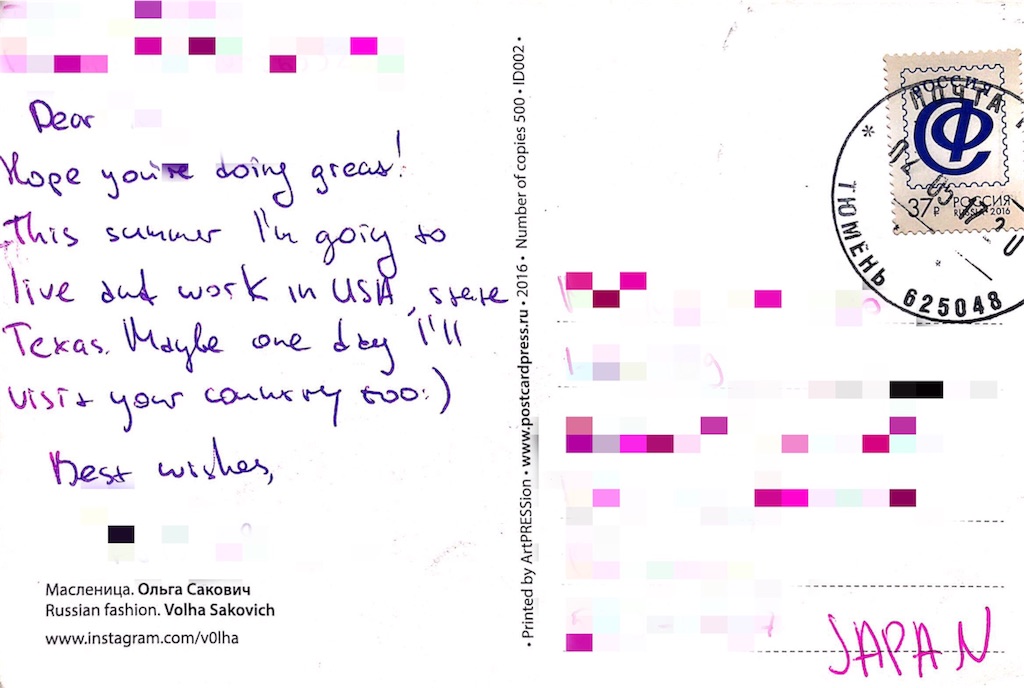 Dear
Hope you're doing great!
This summer I'm going to
live and work in USA, state
Texas. Maybe one day I'll
visit your country too:)
Best wishes,
Масленица. Ольга Сакович
Russian fashion. Volha Sakovich
www.instagram.com/v0lha
• Printed by ArtPRESSion • www.postcardpress.ru • 2016 • Number of copies 500 • ID002 •
РОССИЯ
37 ₽
РОССИЯ
RUSSIA 2016
ПОЧТА
ТЮМЕНЬ 625048
JAPAN